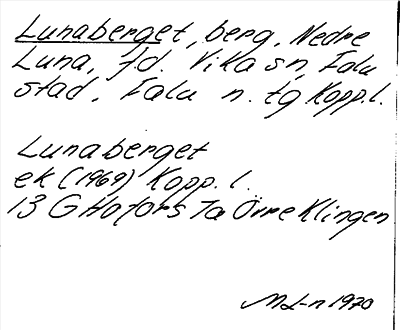 Lunaberget, berg, Nedre
Luna, fd. Vika sn, Falu
stad, Falu n. tg Kopp.l.
Lunaberget
ek (1969) Kopp. l.
13 G Hofors 7a Örneklingen
ML-n 1970